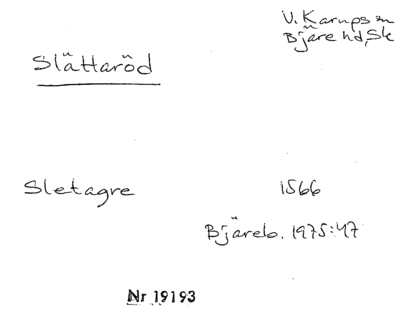 V. Karups sn
Bjäre hd, Sk
Slättaröd
Sletagre 1566
Bjäreb. 1975:47
Nr 19193